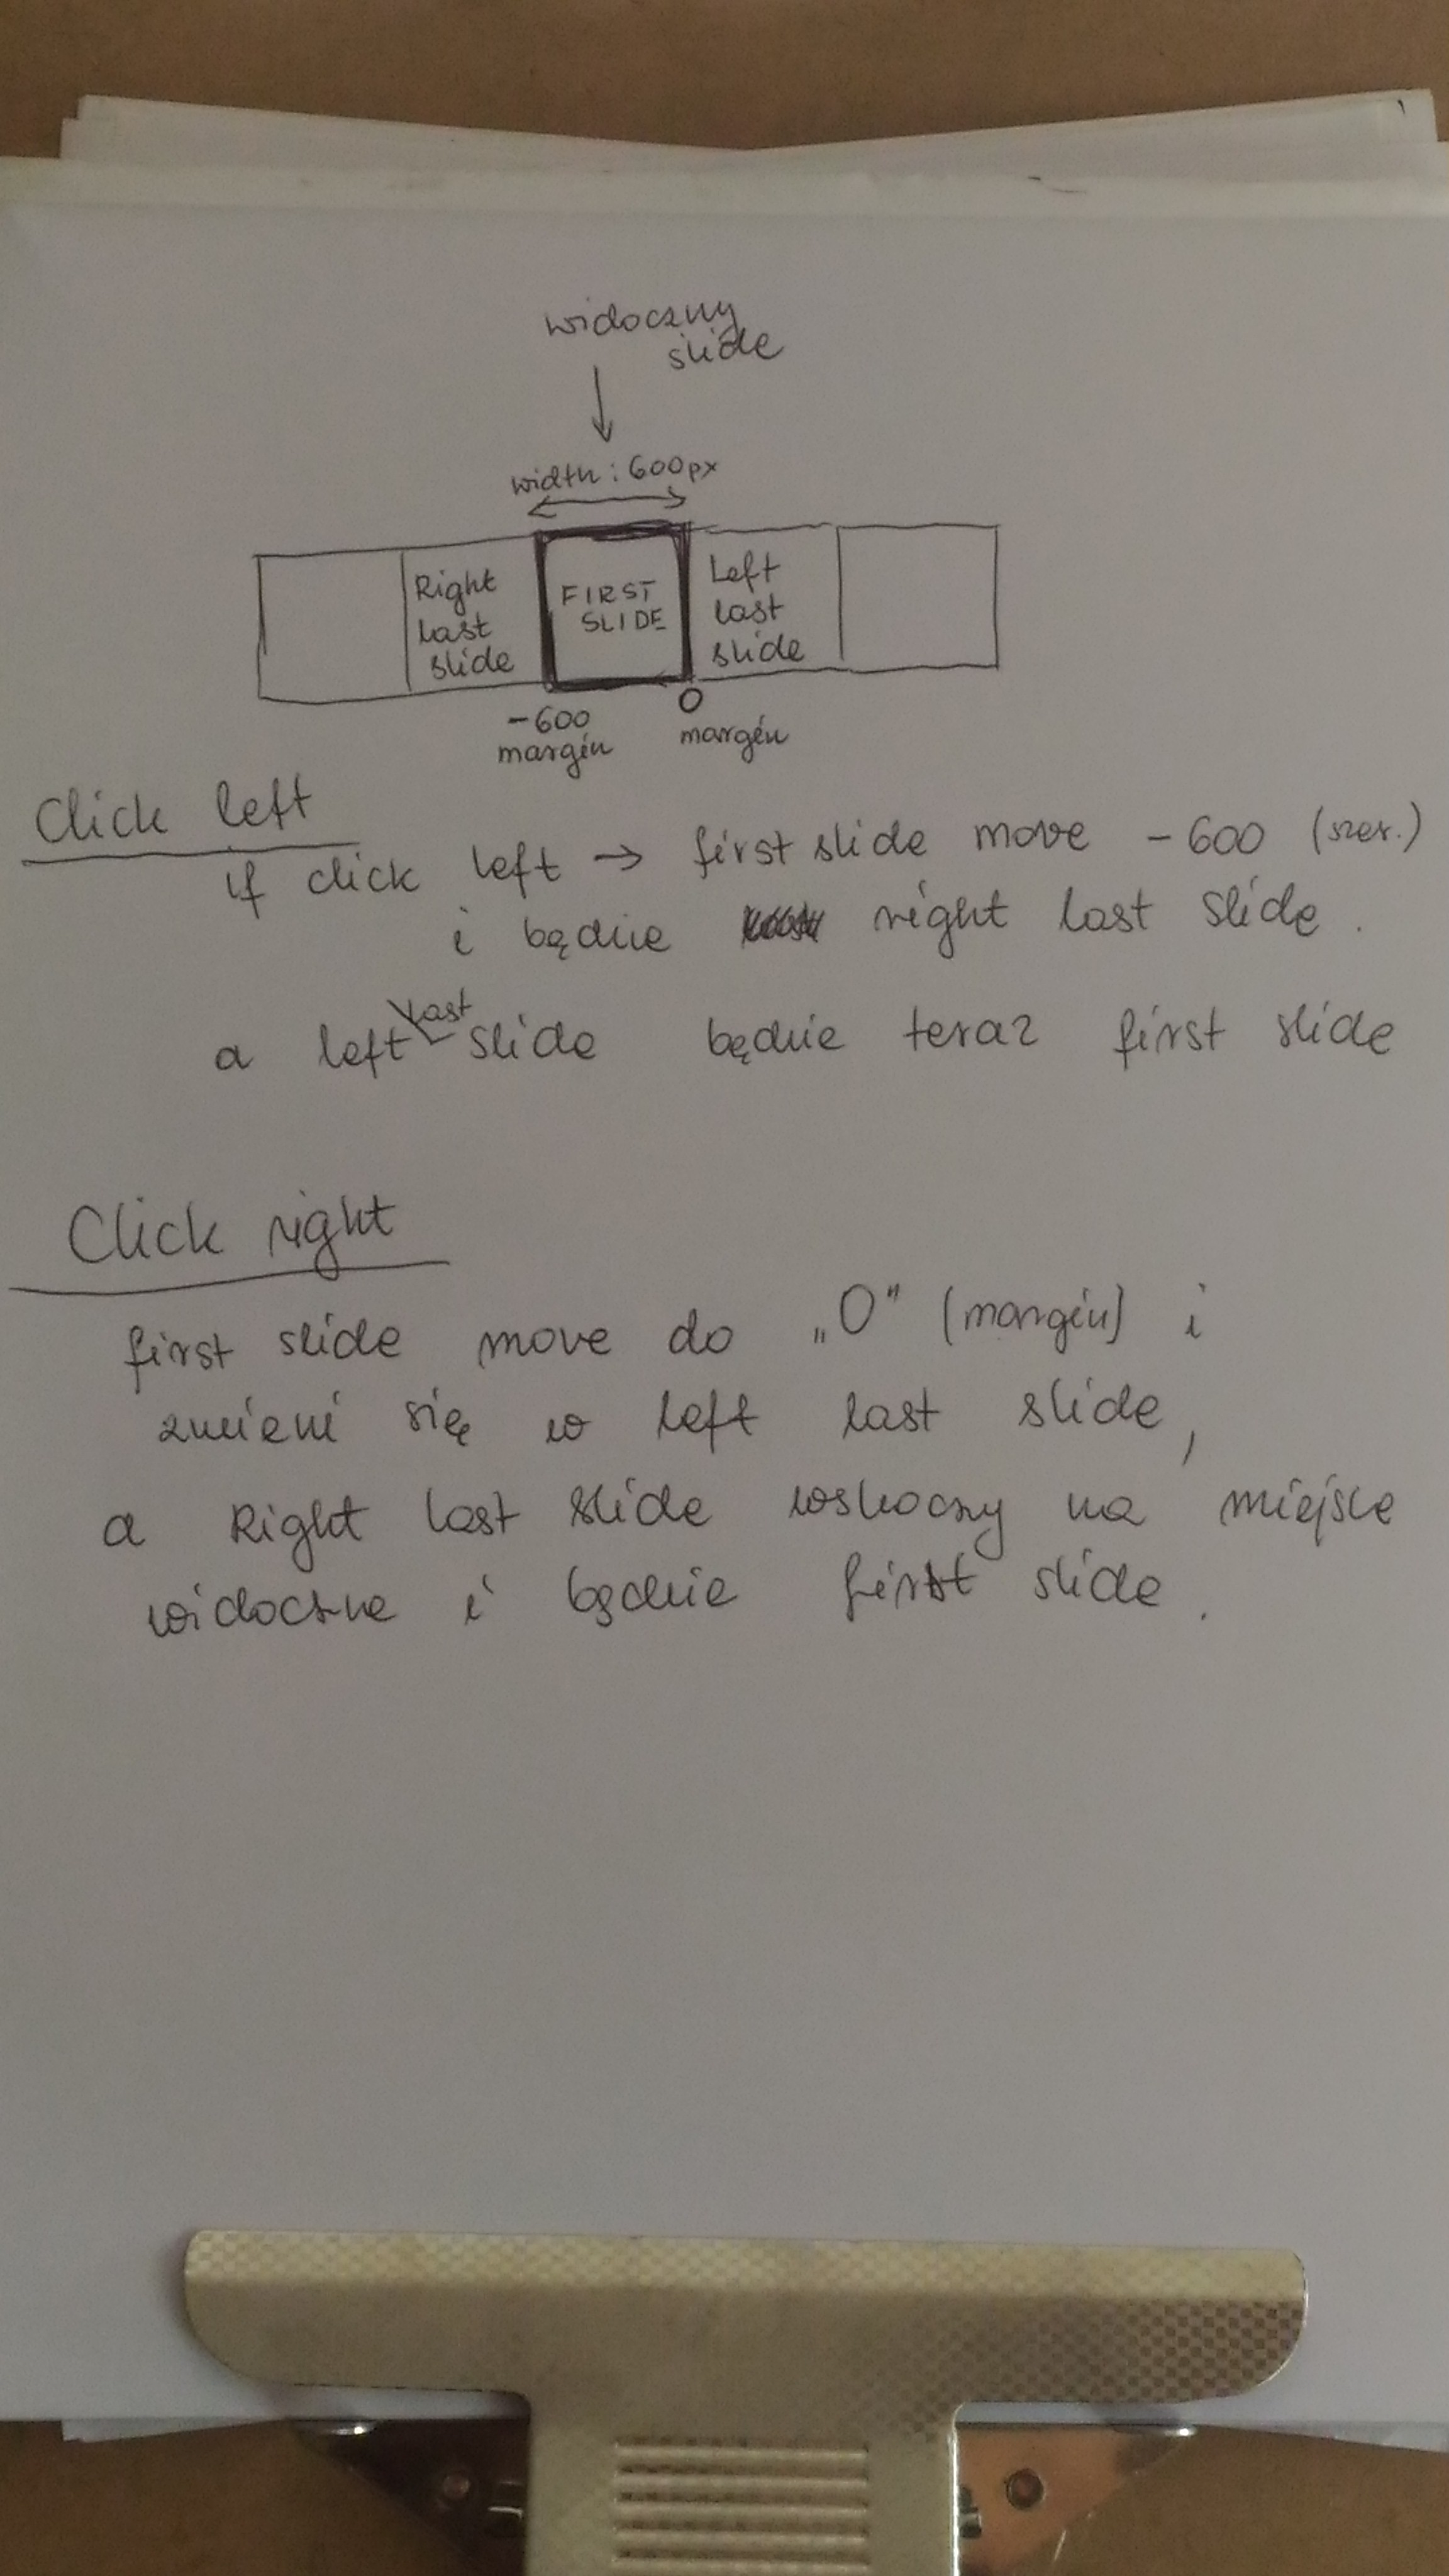 widoczny
slide
width: 600px
Right
last
slide
FIRST
SLIDE
Left
last
slide
-600
margin
0
margin
Click left
if click left → first slide move -600 (szer.)
i będzie right last slide.
a left last slide będzie teraz first slide
Click right
first slide move do „0” (margin) i
zmieni się w left last slide,
a Right last slide wskoczy na miejsce
widoczne i będzie first slide.